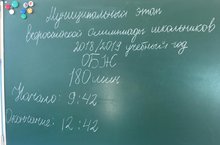 Муниципальный этап
всероссийской олимпиады школьников
2018/2019 учебный год
ОБЖ
180 мин
Начало: 9:42
Окончание: 12:42